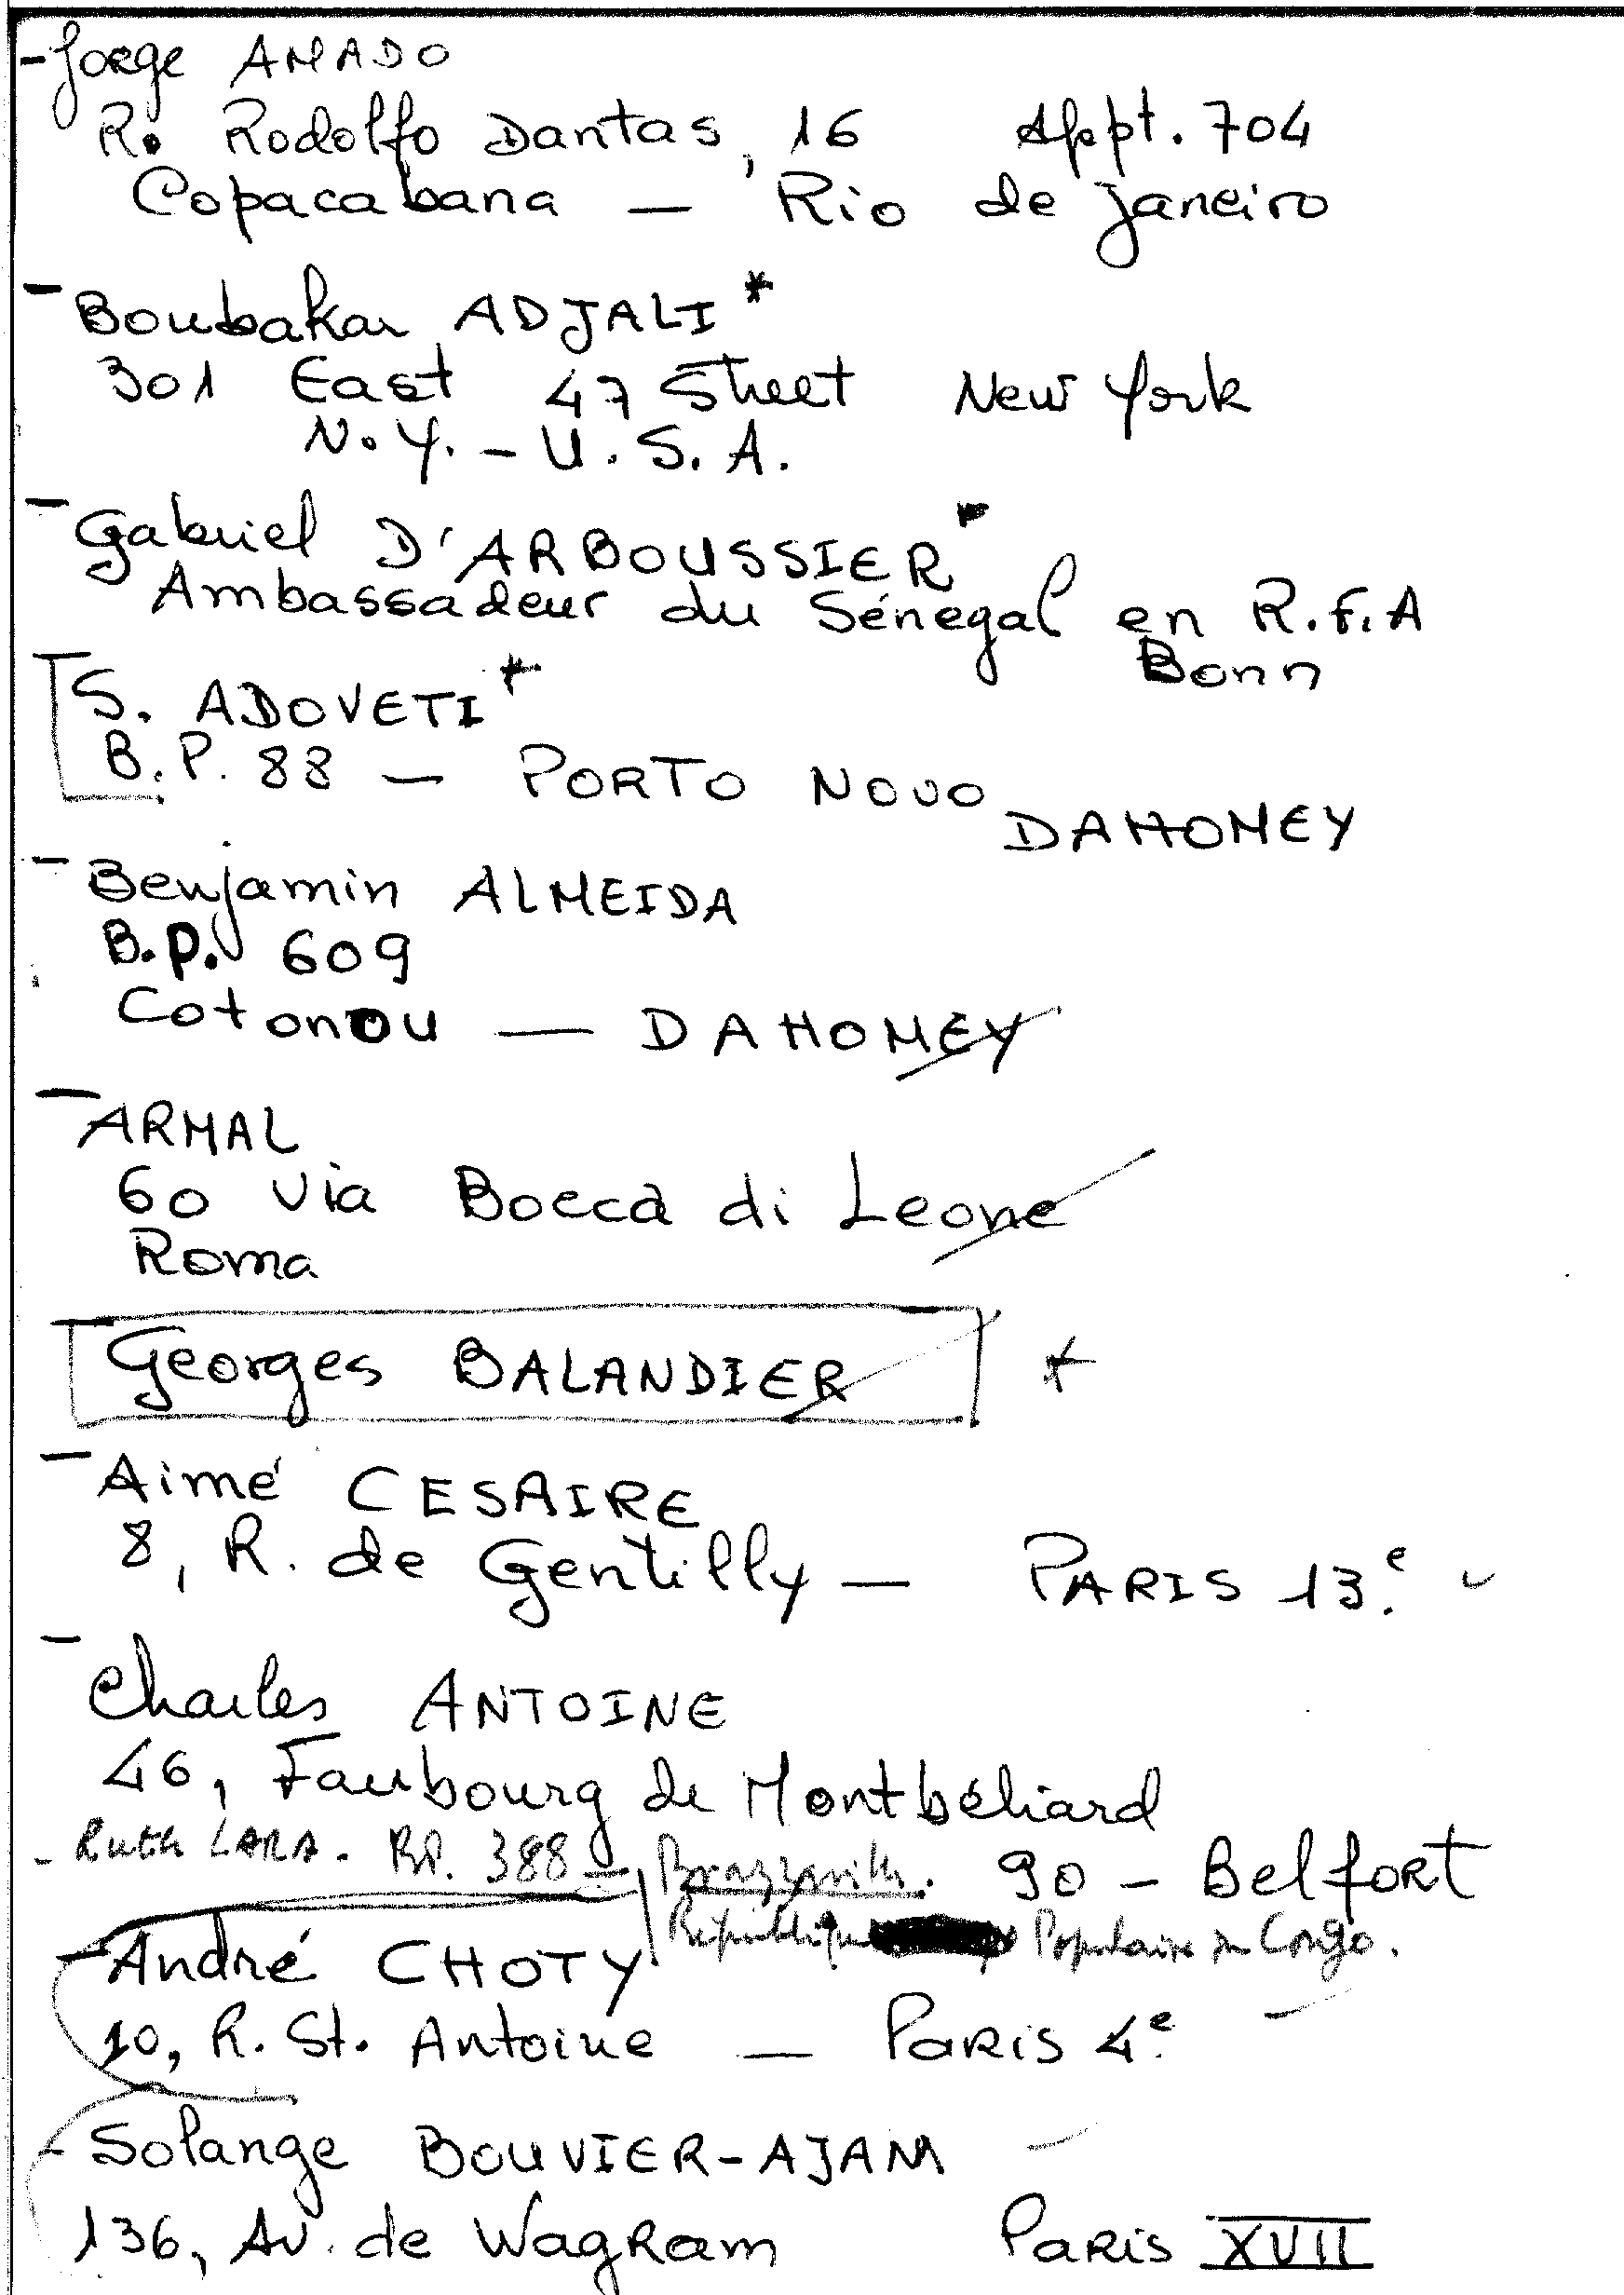 - Jorge AMADO
R. Rodolfo Dantas, 16 Appt. 704
Copacabana — Rio de Janeiro
- Boubakar ADJALI *
301 East 47 Street New York
N.Y. - U.S.A.
- Gabriel D'ARBOUSSIER
Ambassadeur du Sénégal en R.F.A
Bonn
S. ADOVETI *
B.P. 88 — PORTO NOVO
DAHOMEY
- Benjamin ALMEIDA
B.P. 609
Cotonou — DAHOMEY
- ARMAL
60 Via Bocca di Leone
Roma
- Georges BALANDIER *
- Aimé CESAIRE
8, R. de Gentilly — PARIS 13.e
- Charles ANTOINE
46, Faubourg de Montbéliard
90 - Belfort
- Ruth LARA. BP. 388 - Brazzaville.
République Populaire du Congo.
- André CHOTY
10, R. St. Antoine — PARIS 4.e
- Solange BOUVIER-AJAM
136, Av. de Wagram PARIS XVII